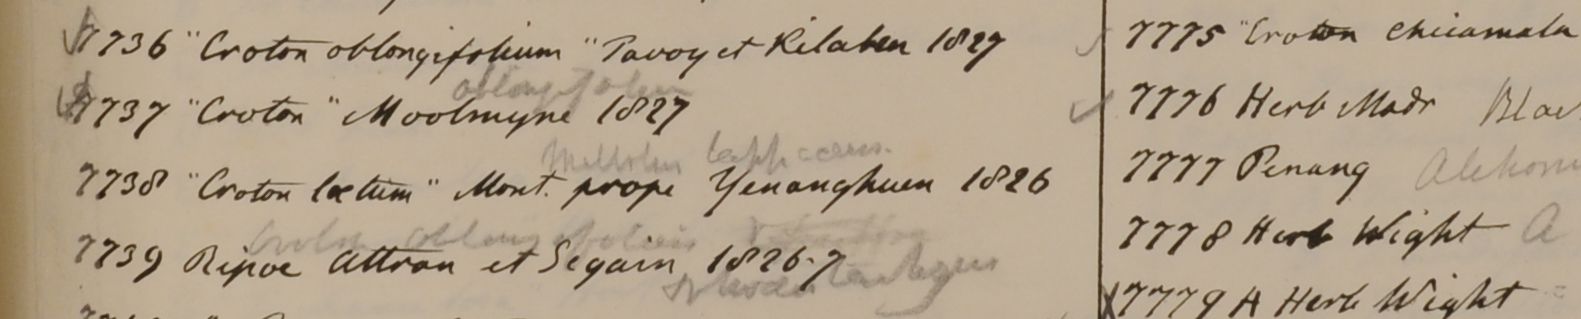 7736 "Croton oblongifolium" Tavoy et Kilaben 1827
oblongifolium
7737 "Croton" Moolmyne 1827
lappaceus
7738 "Croton lætum" Mont. prope Yenanghuen 1826
Croton oblongifolius
7739 Ripoe Attran et Segain 1826-7
7775 "Croton
7776 Herb Madr
7777 Penang
7778 Herb Wight A
7779 A Herb Wight